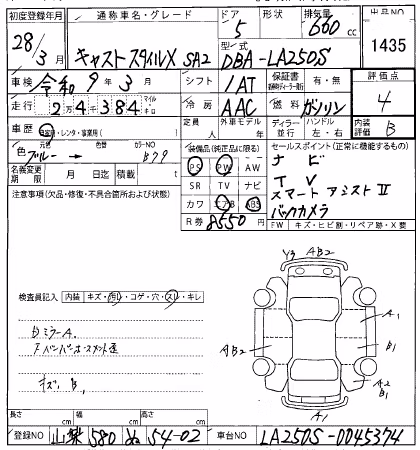 初度登録年月 通称車名・グレード ドア 形状 排気量 出品NO
28/3月 キャストスタイルX SA2 5 660cc 1435
型式 DBA-LA250S
車検 令和9年3月 シフト 1AT 保証書 有・無 評価点
走行 2万4千384 マイル キロ 冷房 AAC 燃料 ガソリン 4
車歴 自家・レンタ・事業用( ) 定員 人 外車モデル 年 ディーラー 並行 ハンドル 左・右 内装評価 B
色 元色 色替 カラーNO
ブルー → B79
装備品(純正品に限る) セールスポイント(正常に機能するもの)
PS PW AW ナビ
名義変更期限 月 日迄 積載 t SR TV ナビ TV
注意事項(欠品・修復・不具合箇所および状態) カワ エアB ABS スマートアシストII
R券 8550 バックカメラ
FW キズ・ヒビ割・リペア跡・X要
Y3 AB2
検査員記入 内装 キズ・汚れ・コゲ・穴・スレ・キレ
A1
AB2
B1
キズ、B1
A2
B3
A1
長さ cm 幅 cm 高さ cm
登録NO 山梨 580 ぬ 54-02 車台NO LA250S-0045374